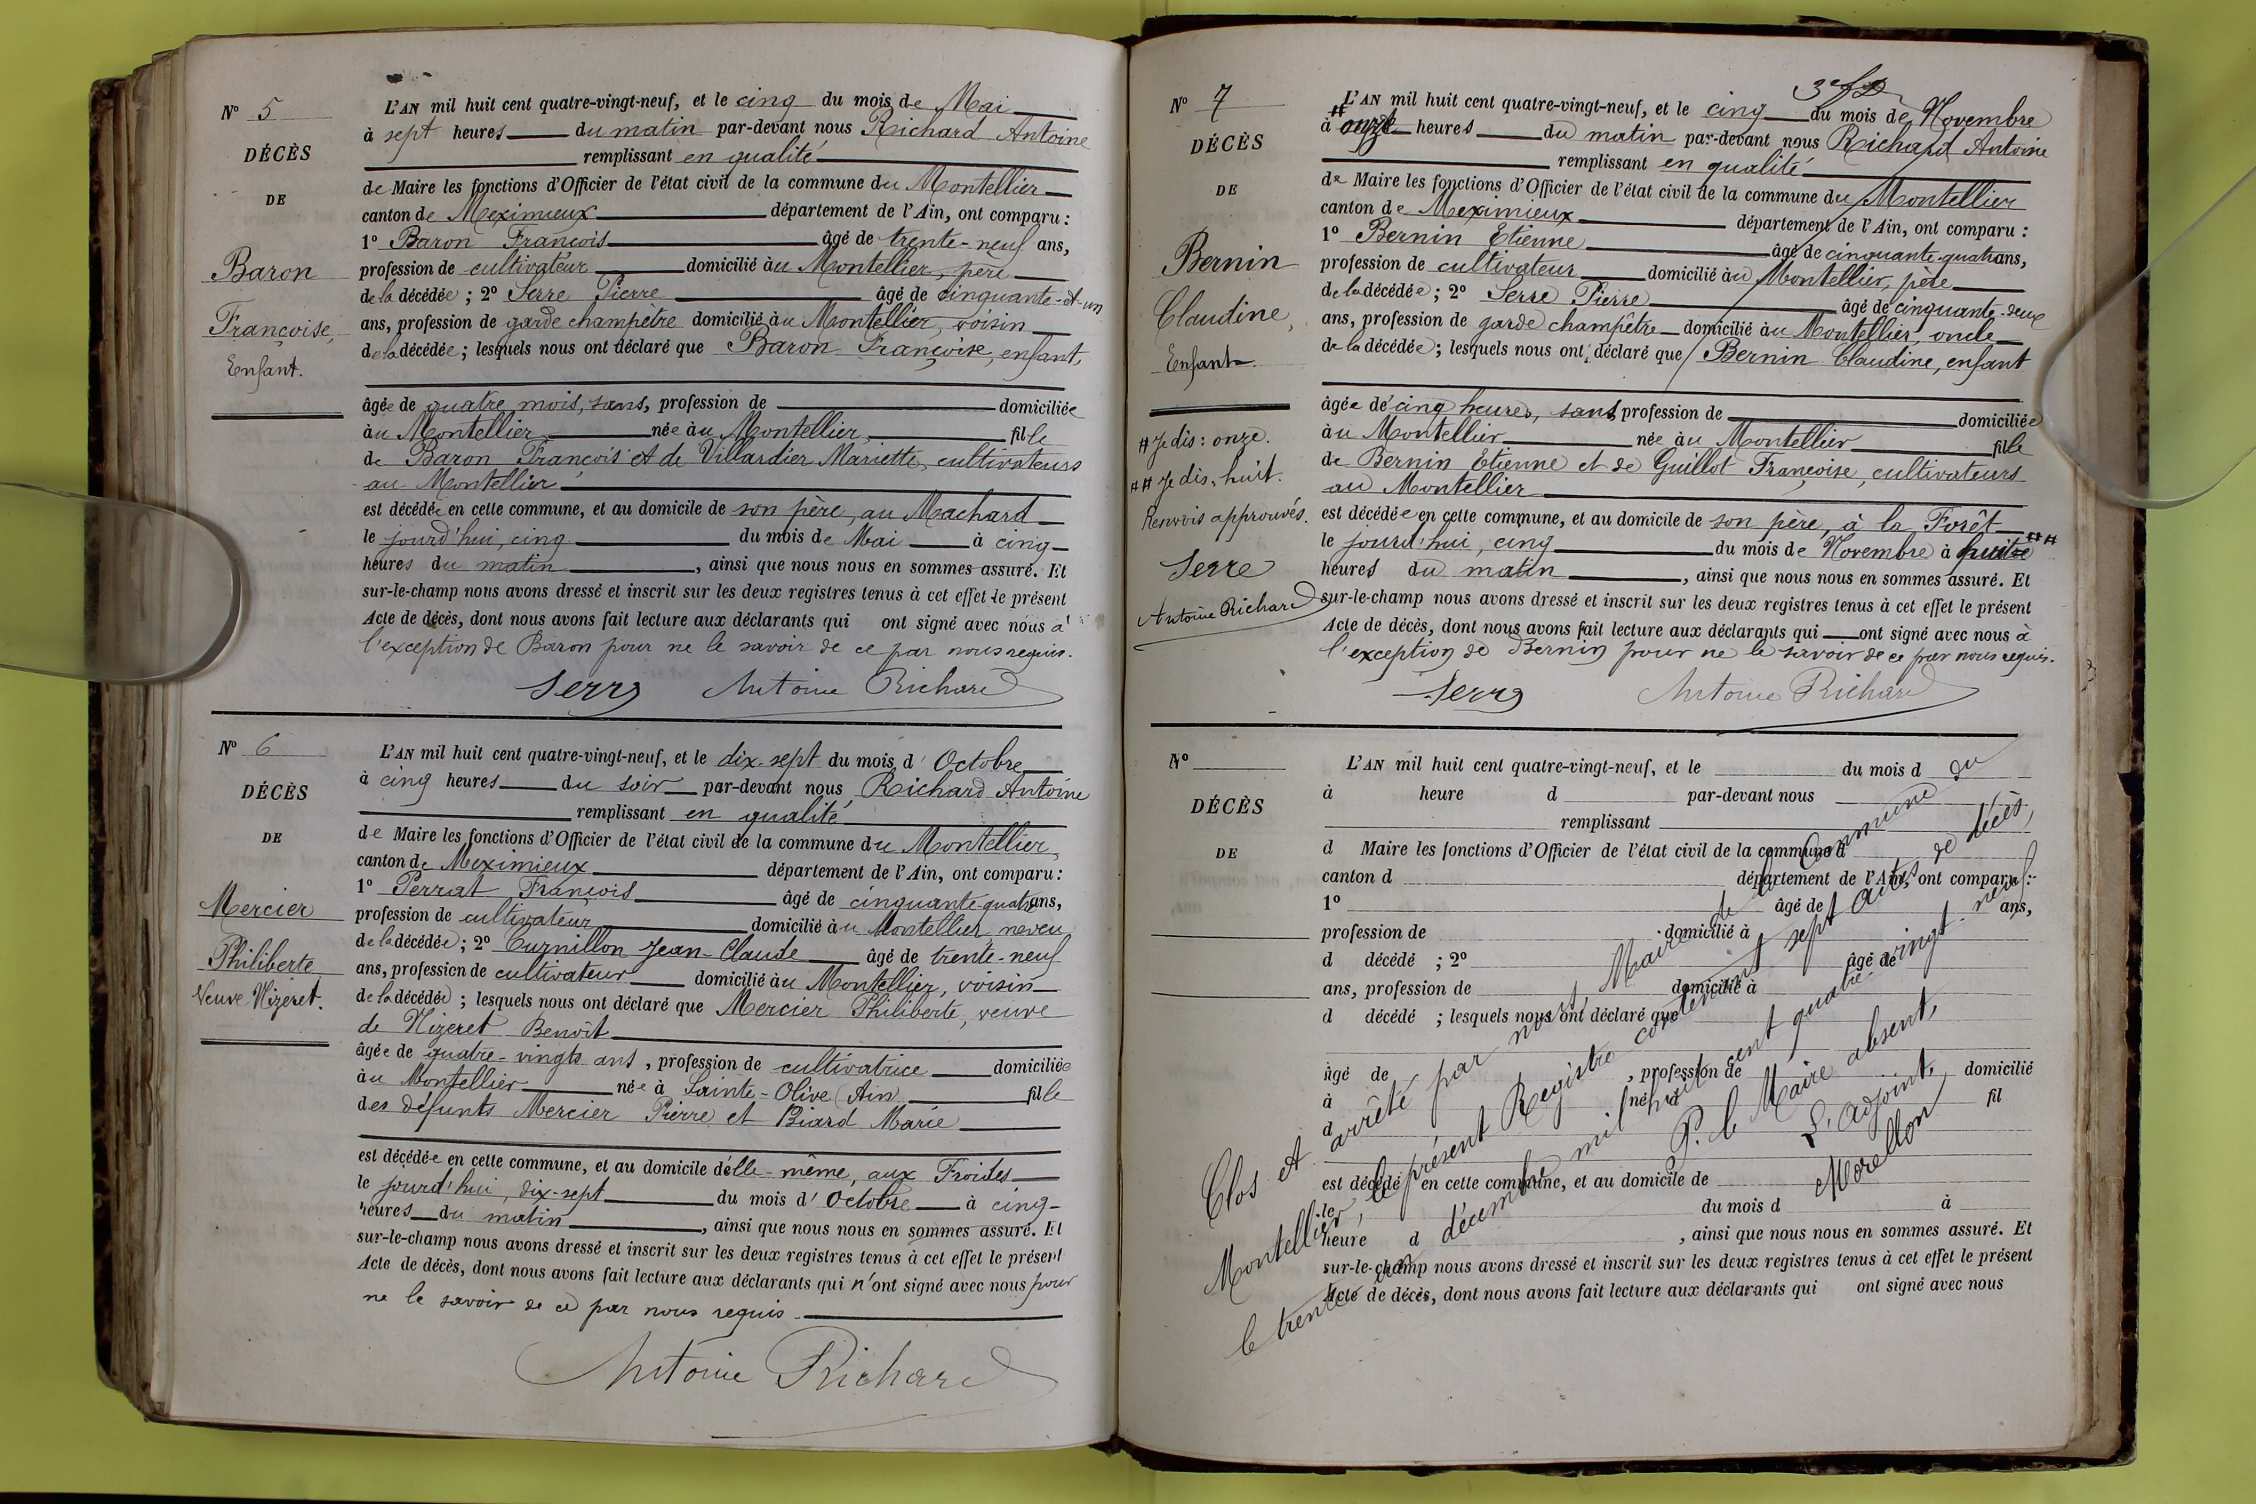 N° 5
DÉCÈS
DE
Baron
Françoise,
Enfant.
L'AN mil huit cent quatre-vingt-neuf, et le cinq du mois de Mai
à sept heures du matin par-devant nous Richard Antoine
remplissant en qualité
de Maire les fonctions d'Officier de l'état civil de la commune du Montellier
canton de Meximieux département de l'Ain, ont comparu :
1° Baron François âgé de trente-neuf ans,
profession de cultivateur domicilié au Montellier, père
de la décédée ; 2° Serre Pierre âgé de cinquante-et-un
ans, profession de garde champêtre domicilié au Montellier, voisin
de la décédée ; lesquels nous ont déclaré que Baron Françoise, enfant,
âgée de quatre mois, sans, profession de domiciliée
au Montellier née au Montellier, fille
de Baron François et de Villardier Mariette, cultivateurs
au Montellier
est décédée en cette commune, et au domicile de son père, au Machard
le jourd'hui, cinq du mois de Mai à cinq
heures du matin , ainsi que nous nous en sommes assuré. Et
sur-le-champ nous avons dressé et inscrit sur les deux registres tenus à cet effet le présent
Acte de décès, dont nous avons fait lecture aux déclarants qui ont signé avec nous à
l'exception de Baron pour ne le savoir de ce par nous requis.
Serre Antoine Richard
N° 6
DÉCÈS
DE
Mercier
Philiberte,
Veuve Nizeret.
L'AN mil huit cent quatre-vingt-neuf, et le dix-sept du mois d'Octobre
à cinq heures du soir par-devant nous Richard Antoine
remplissant en qualité
de Maire les fonctions d'Officier de l'état civil de la commune du Montellier,
canton de Meximieux département de l'Ain, ont comparu :
1° Perrat François âgé de cinquante-quatre ans,
profession de cultivateur domicilié au Montellier neveu
de la décédée ; 2° Curnillon Jean-Claude âgé de trente-neuf
ans, profession de cultivateur domicilié au Montellier, voisin
de la décédée ; lesquels nous ont déclaré que Mercier Philiberte, veuve
de Nizeret Benoît
âgée de quatre-vingts ans, profession de cultivatrice domiciliée
au Montellier née à Sainte-Olive (Ain) fille
des défunts Mercier Pierre et Biard Marie
est décédée en cette commune, et au domicile d'elle-même, aux Froides
le jourd'hui, dix-sept du mois d'Octobre à cinq
heures du matin , ainsi que nous nous en sommes assuré. Et
sur-le-champ nous avons dressé et inscrit sur les deux registres tenus à cet effet le présent
Acte de décès, dont nous avons fait lecture aux déclarants qui n'ont signé avec nous pour
ne le savoir de ce par nous requis.
Antoine Richard
N° 7
DÉCÈS
DE
Bernin
Claudine,
Enfant.
# Je dis : onze.
## Je dis, huit.
Renvois approuvés.
Serre
Antoine Richard
L'AN mil huit cent quatre-vingt-neuf, et le cinq du mois de Novembre
à # onze heures du matin par-devant nous Richard Antoine
remplissant en qualité
de Maire les fonctions d'Officier de l'état civil de la commune du Montellier
canton de Meximieux département de l'Ain, ont comparu :
1° Bernin Etienne âgé de cinquante-quatre ans,
profession de cultivateur domicilié au Montellier, père
de la décédée ; 2° Serre Pierre âgé de cinquante-deux
ans, profession de garde champêtre domicilié au Montellier, oncle
de la décédée ; lesquels nous ont déclaré que Bernin Claudine, enfant
âgée de cinq heures, sans profession de domiciliée
au Montellier née au Montellier fille
de Bernin Etienne et de Guillot Françoise, cultivateurs
au Montellier
est décédée en cette commune, et au domicile de son père, à la Forêt
le jourd'hui, cinq du mois de Novembre à huit ##
heures du matin , ainsi que nous nous en sommes assuré. Et
sur-le-champ nous avons dressé et inscrit sur les deux registres tenus à cet effet le présent
Acte de décès, dont nous avons fait lecture aux déclarants qui ont signé avec nous à
l'exception de Bernin pour ne le savoir de ce par nous requis.
Serre Antoine Richard
N°
DÉCÈS
DE
L'AN mil huit cent quatre-vingt-neuf, et le du mois d
à heure d par-devant nous
remplissant
d Maire les fonctions d'Officier de l'état civil de la commune d
canton d département de l'Ain, ont comparu :
1° âgé de ans,
profession de domicilié à
d décédé ; 2° âgé de
ans, profession de domicilié à
d décédé ; lesquels nous ont déclaré que
âgé de , profession de domicilié
à né à fil
d
est décédé en cette commune, et au domicile de
le du mois d à
heure d , ainsi que nous nous en sommes assuré. Et
sur-le-champ nous avons dressé et inscrit sur les deux registres tenus à cet effet le présent
Acte de décès, dont nous avons fait lecture aux déclarants qui ont signé avec nous
Clos et arrêté par nous, Maire de la Commune du
Montellier, le présent Registre contenant sept actes de décès,
le trente un décembre mil huit cent quatre-vingt-neuf.
P. le Maire absent,
L'adjoint,
Morellon